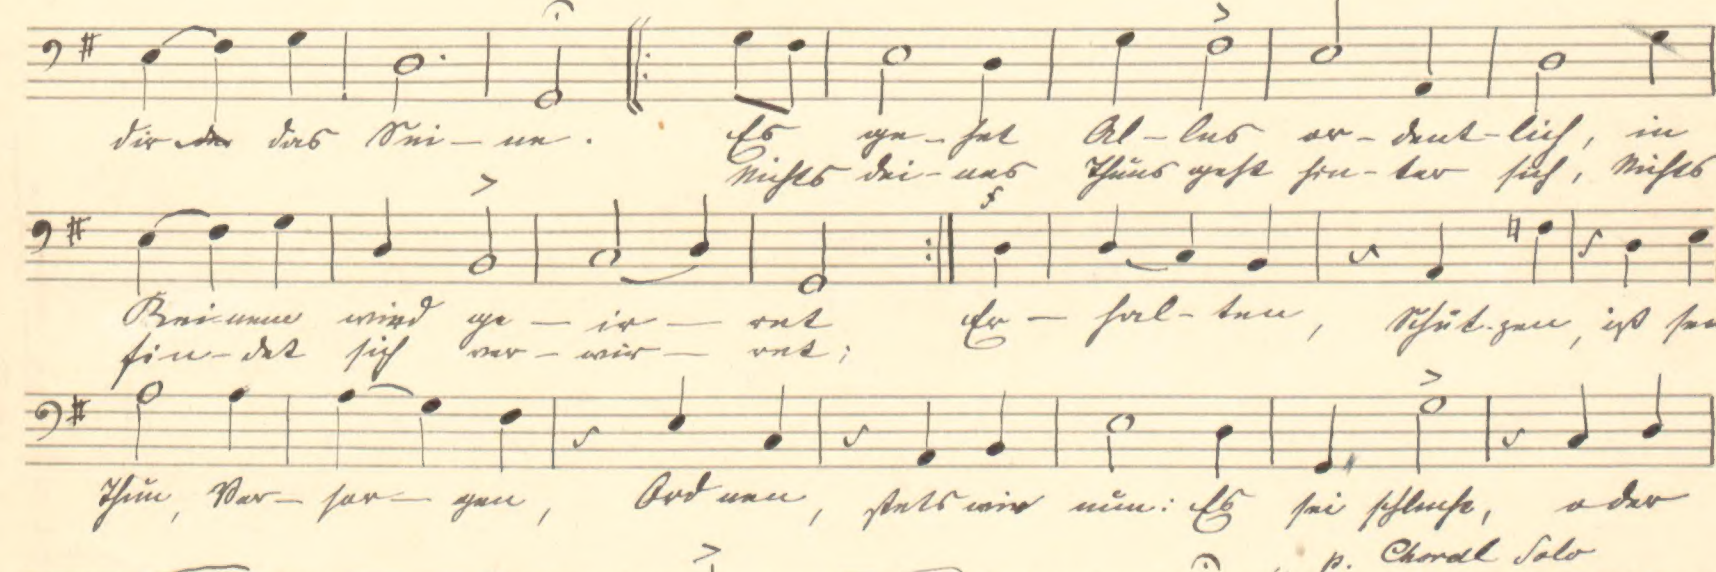 dir das Sei – ne.  Es ge – het Al – les or – dent – lich, in
Nichts dei – nes Thuns geht hin – ter sich, Nichts
Keinem wird ge – ir – ret  Er – hal – ten, Schüt-zen, ist sein
fin – det sich ver – wir – ret;
Thun, Ver – sor – gen, Ord nen, stets wie nun: Es sei schlecht, oder
p. Choral Solo